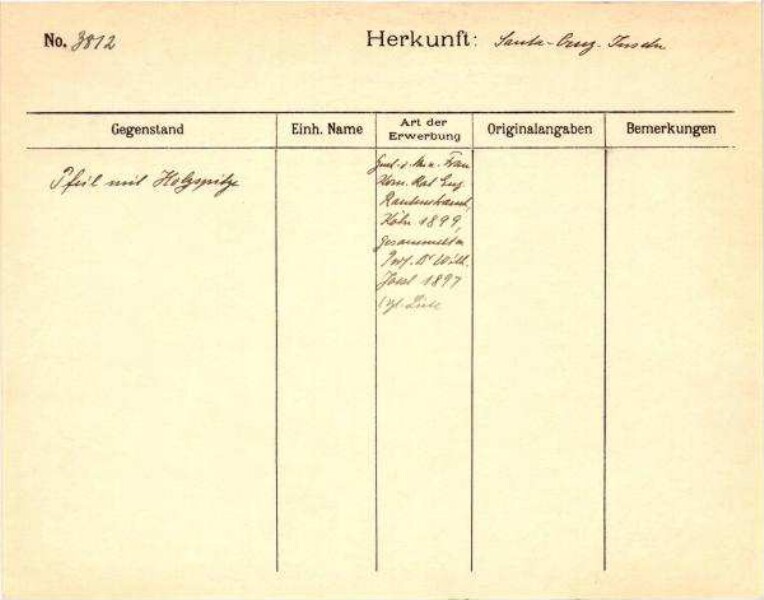 No. 3812
Herkunft: Santa-Cruz-Inseln
Gegenstand
Einh. Name
Art der Erwerbung
Originalangaben
Bemerkungen
Pfeil mit Holzspitze
Frau
Kom. Rat Eug.
Rautenstrauch,
Köln 1899,
gesammelt v.
Prof. Dr Wilh.
Joest 1897